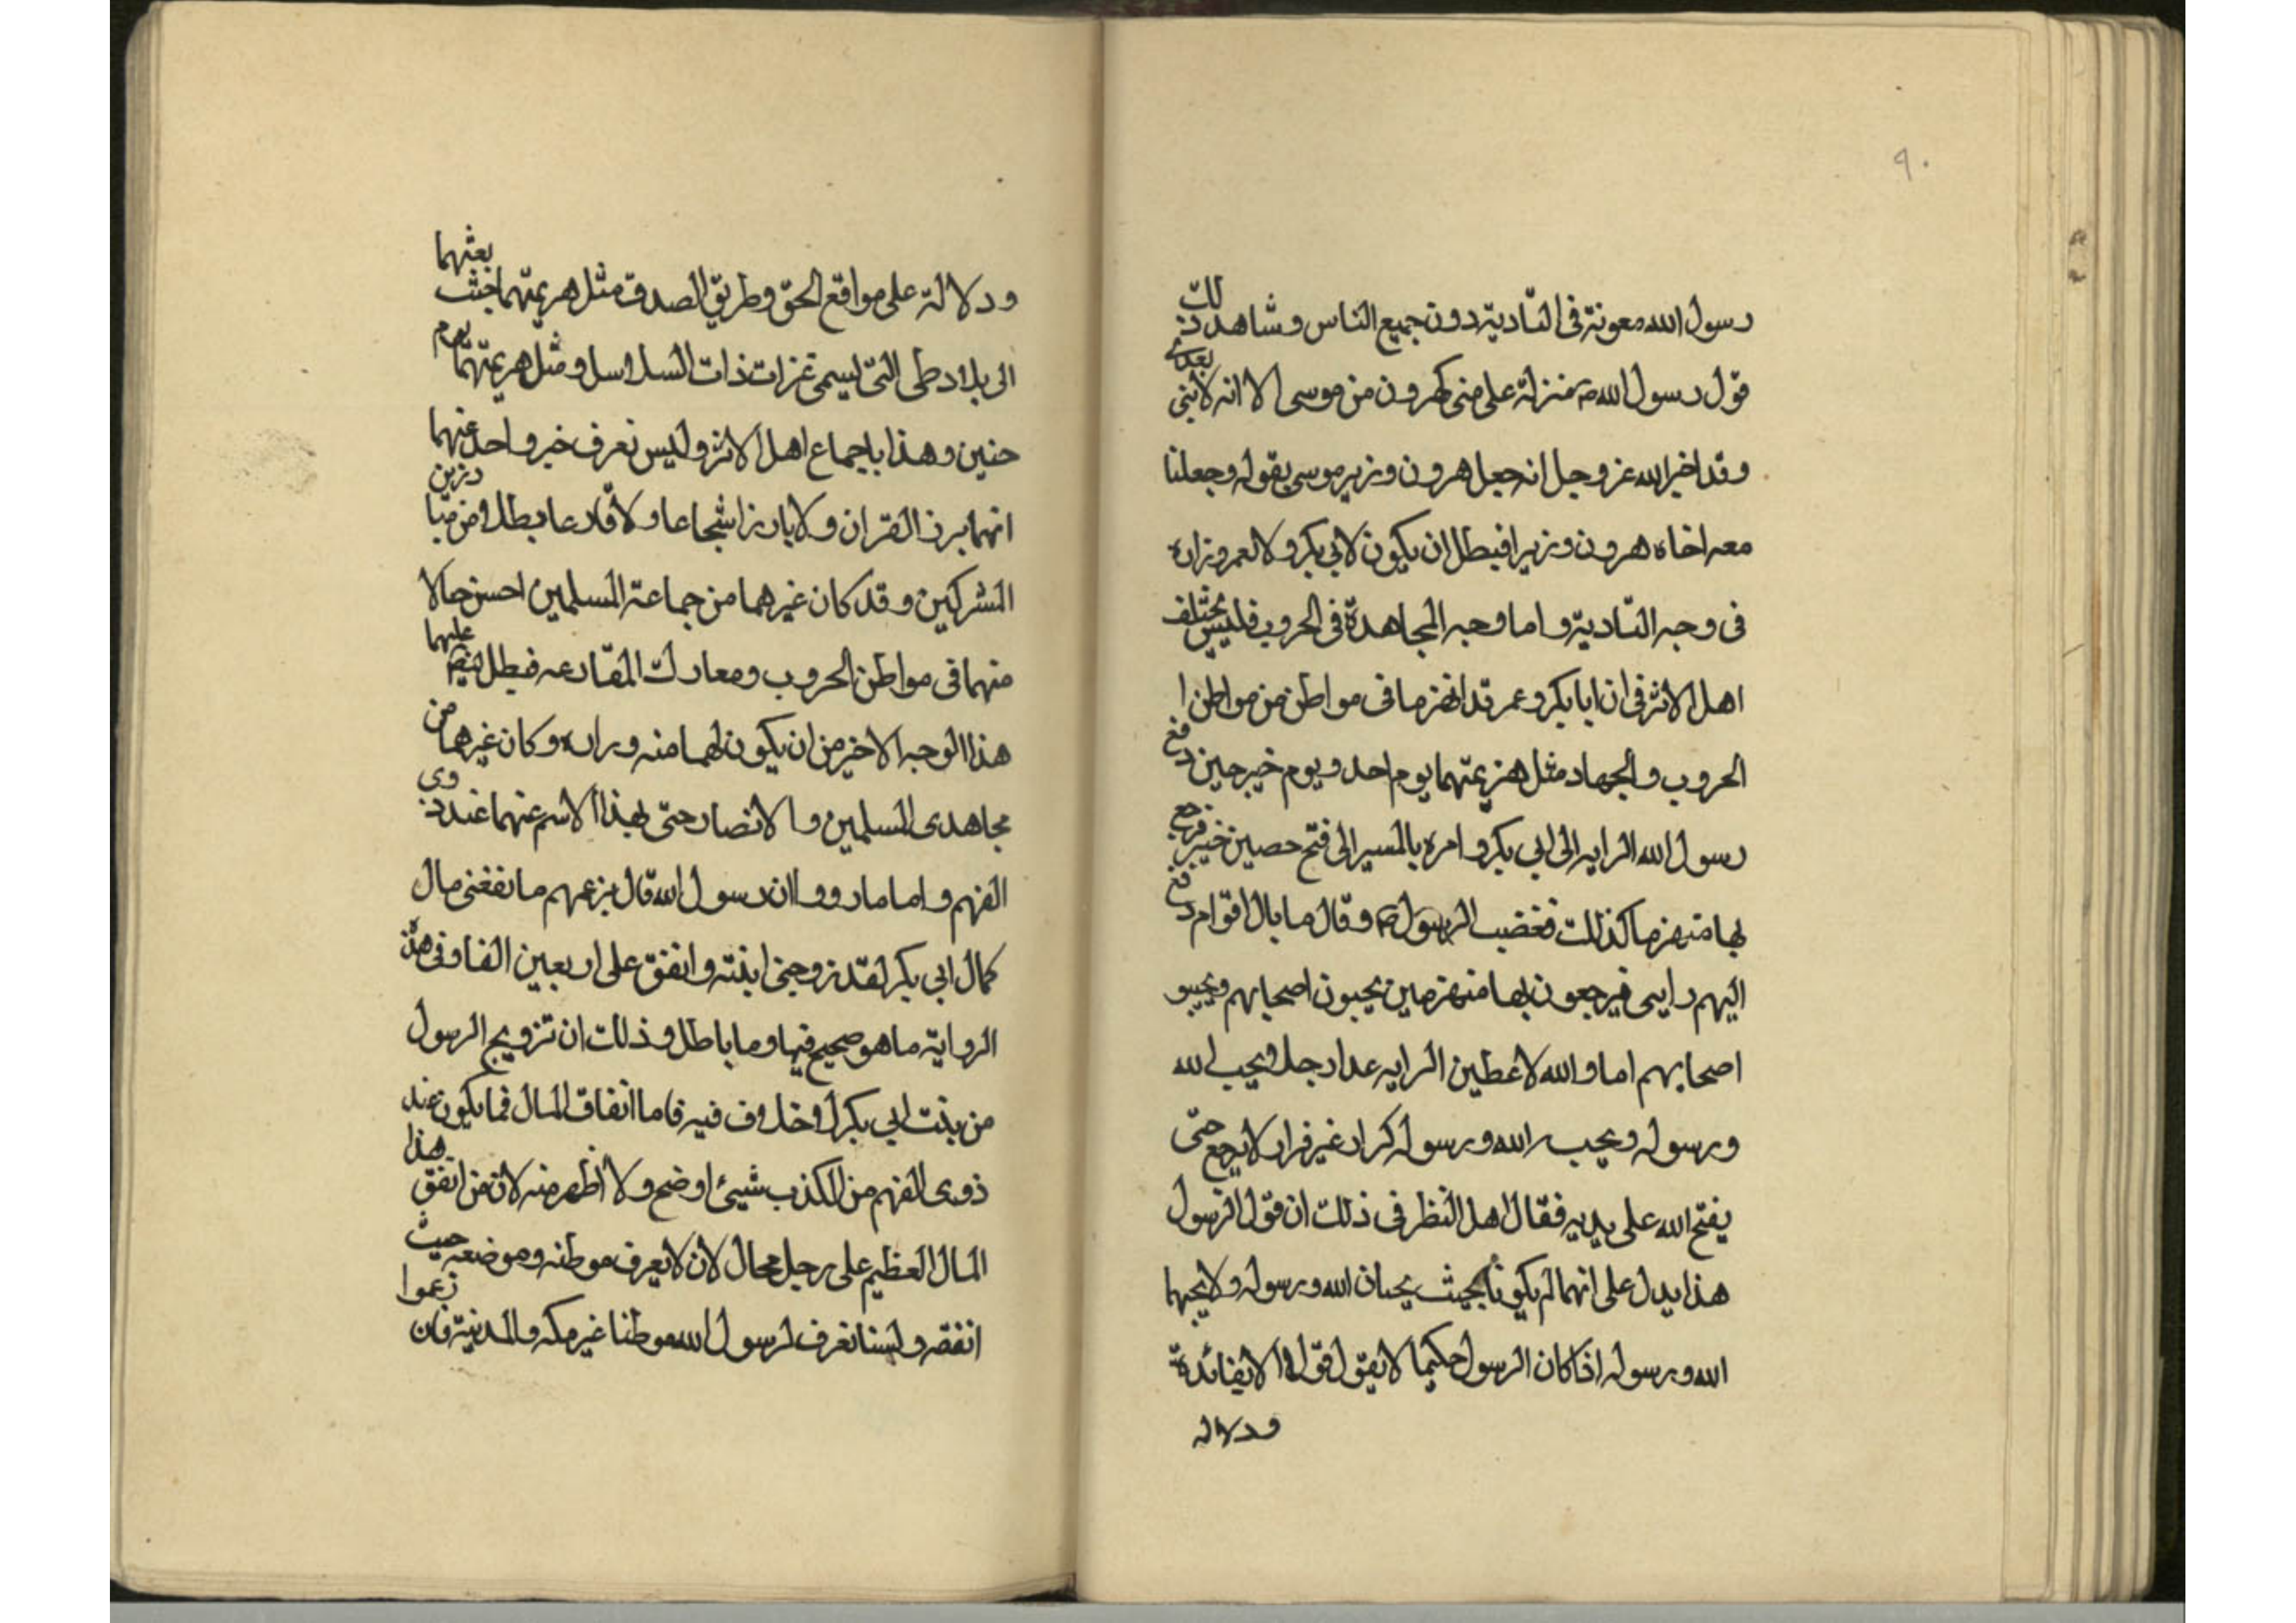 ٩٠
رسول الله معونة فى التادية دون جميع الناس وشاهد ذلك
قول رسول الله ص منزلة على منى كهرون من موسى الا انه لا نبى بعدى
وقد اخبر الله عز وجل انه جعل هرون وزير موسى بقوله وجعلنا
معه اخاه هرون وزيرا فبطل ان يكون لابى بكر ولا لعمر وزارة
فى وجه التادية واما وجه المجاهدة فى الحروب فليس يختلف
اهل الاثر فى ان ابا بكر وعمر قد انهزما فى مواطن من مواطن ا
الحروب والجهاد مثل هزيمتهما يوم احد ويوم خيبر حين دفع
رسول الله الرايه الى ابى بكر وامره بالمسير الى فتح حصين خيبر فرجع
بها منهزما كذلك فغضب الرسول ص وقال ما بال اقوام دفع
اليهم رايتى فيرجعون بها منهزمين يجبون اصحابهم ويجبو
اصحابهم اما والله لاعطين الرايه غدا رجلا يحب الله
ورسوله ويحب الله ورسوله كرار غير فرار لا يرجع حتى
يفتح الله على يديه فقال اهل النظر فى ذلك ان قول الرسول
هذا يدل على انهما لم يكونا بحيث يحبان الله ورسوله ولا يحبهما
الله ورسوله اذا كان الرسول حكيما لا يقول قولا الا لفائدة
ودلاله
ودلالة على مواقع الحق وطريق الصدق مثل هزيمتهما حيث بعثهما
الى بلاد طى التى ليسمى غزات ذات السلاسل ومثل هزيمتهما يوم
حنين وهذا باجماع اهل الاثر وليس نعرف خبر واحد عنهما
انهما برز القران ولا بارزا شجاعا ولا قارعا بطلا من مبارزين
المشركين وقد كان غيرهما من جماعة المسلمين احسن حالا
منهما فى مواطن الحروب ومعارك المقارعه فبطل عليهما
هذا الوجه الاخير من ان يكون لهما منه وزارة وكان غيرهما من
مجاهدى المسلمين والانصار حتى بهذا الاسم عنهما عند ذوى
الفهم واما ما رووا ان رسول الله قال بزعمهم ما نفغنى مال
كمال ابى بكر لقد زوجنى ابنته وانفق على اربعين الفا وفى هذه
الرواية ما هو صحيح فيها وما باطل وذلك ان تزويج الرسول
من بنت ابى بكر لا خلاف فيه فاما انفاق المال فما يكون عند
ذوى الفهم من الكذب شيئ اوضح ولا اظهر منه لان من انفق هذا
المال العظيم على رجل محال لان لا يعرف موطنه وموضعه حيث
انفقه ولسنا نعرف لرسول الله موطنا غير مكه والمدينة فان زعموا